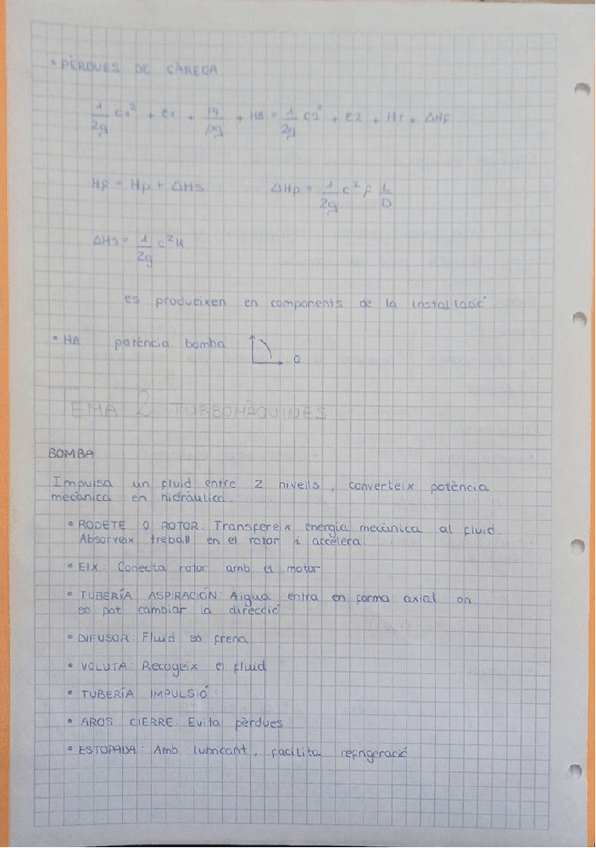 • PÈRDUES DE CÀREGA
1/2g c1² + z1 + P1/ρg + HB = 1/2g c2² + z2 + Hr + ΔHf
Hf = Hp + ΔHs ΔHp = 1/2g c² f L/D
ΔHs = 1/2g c² k
es produeixen en components de la instal·lació
• HB potència bomba Q
TEMA 2: TURBOMÀQUINES
BOMBA
Impulsa un fluid entre 2 nivells, converteix potència
mecànica en hidràulica.
• RODETE O ROTOR: Transfereix energia mecànica al fluid
Absorveix treball en el rotor i accelera
• EIX: Conecta rotor amb el motor
• TUBERÍA ASPIRACIÓN: Aigua entra en forma axial on
es pot cambiar la direcció
• DIFUSOR: Fluid es frena
• VOLUTA: Recogeix el fluid
• TUBERÍA IMPULSIÓ:
• AROS CIERRE: Evita pèrdues
• ESTOPADA: Amb lubricant, facilita refrigeració